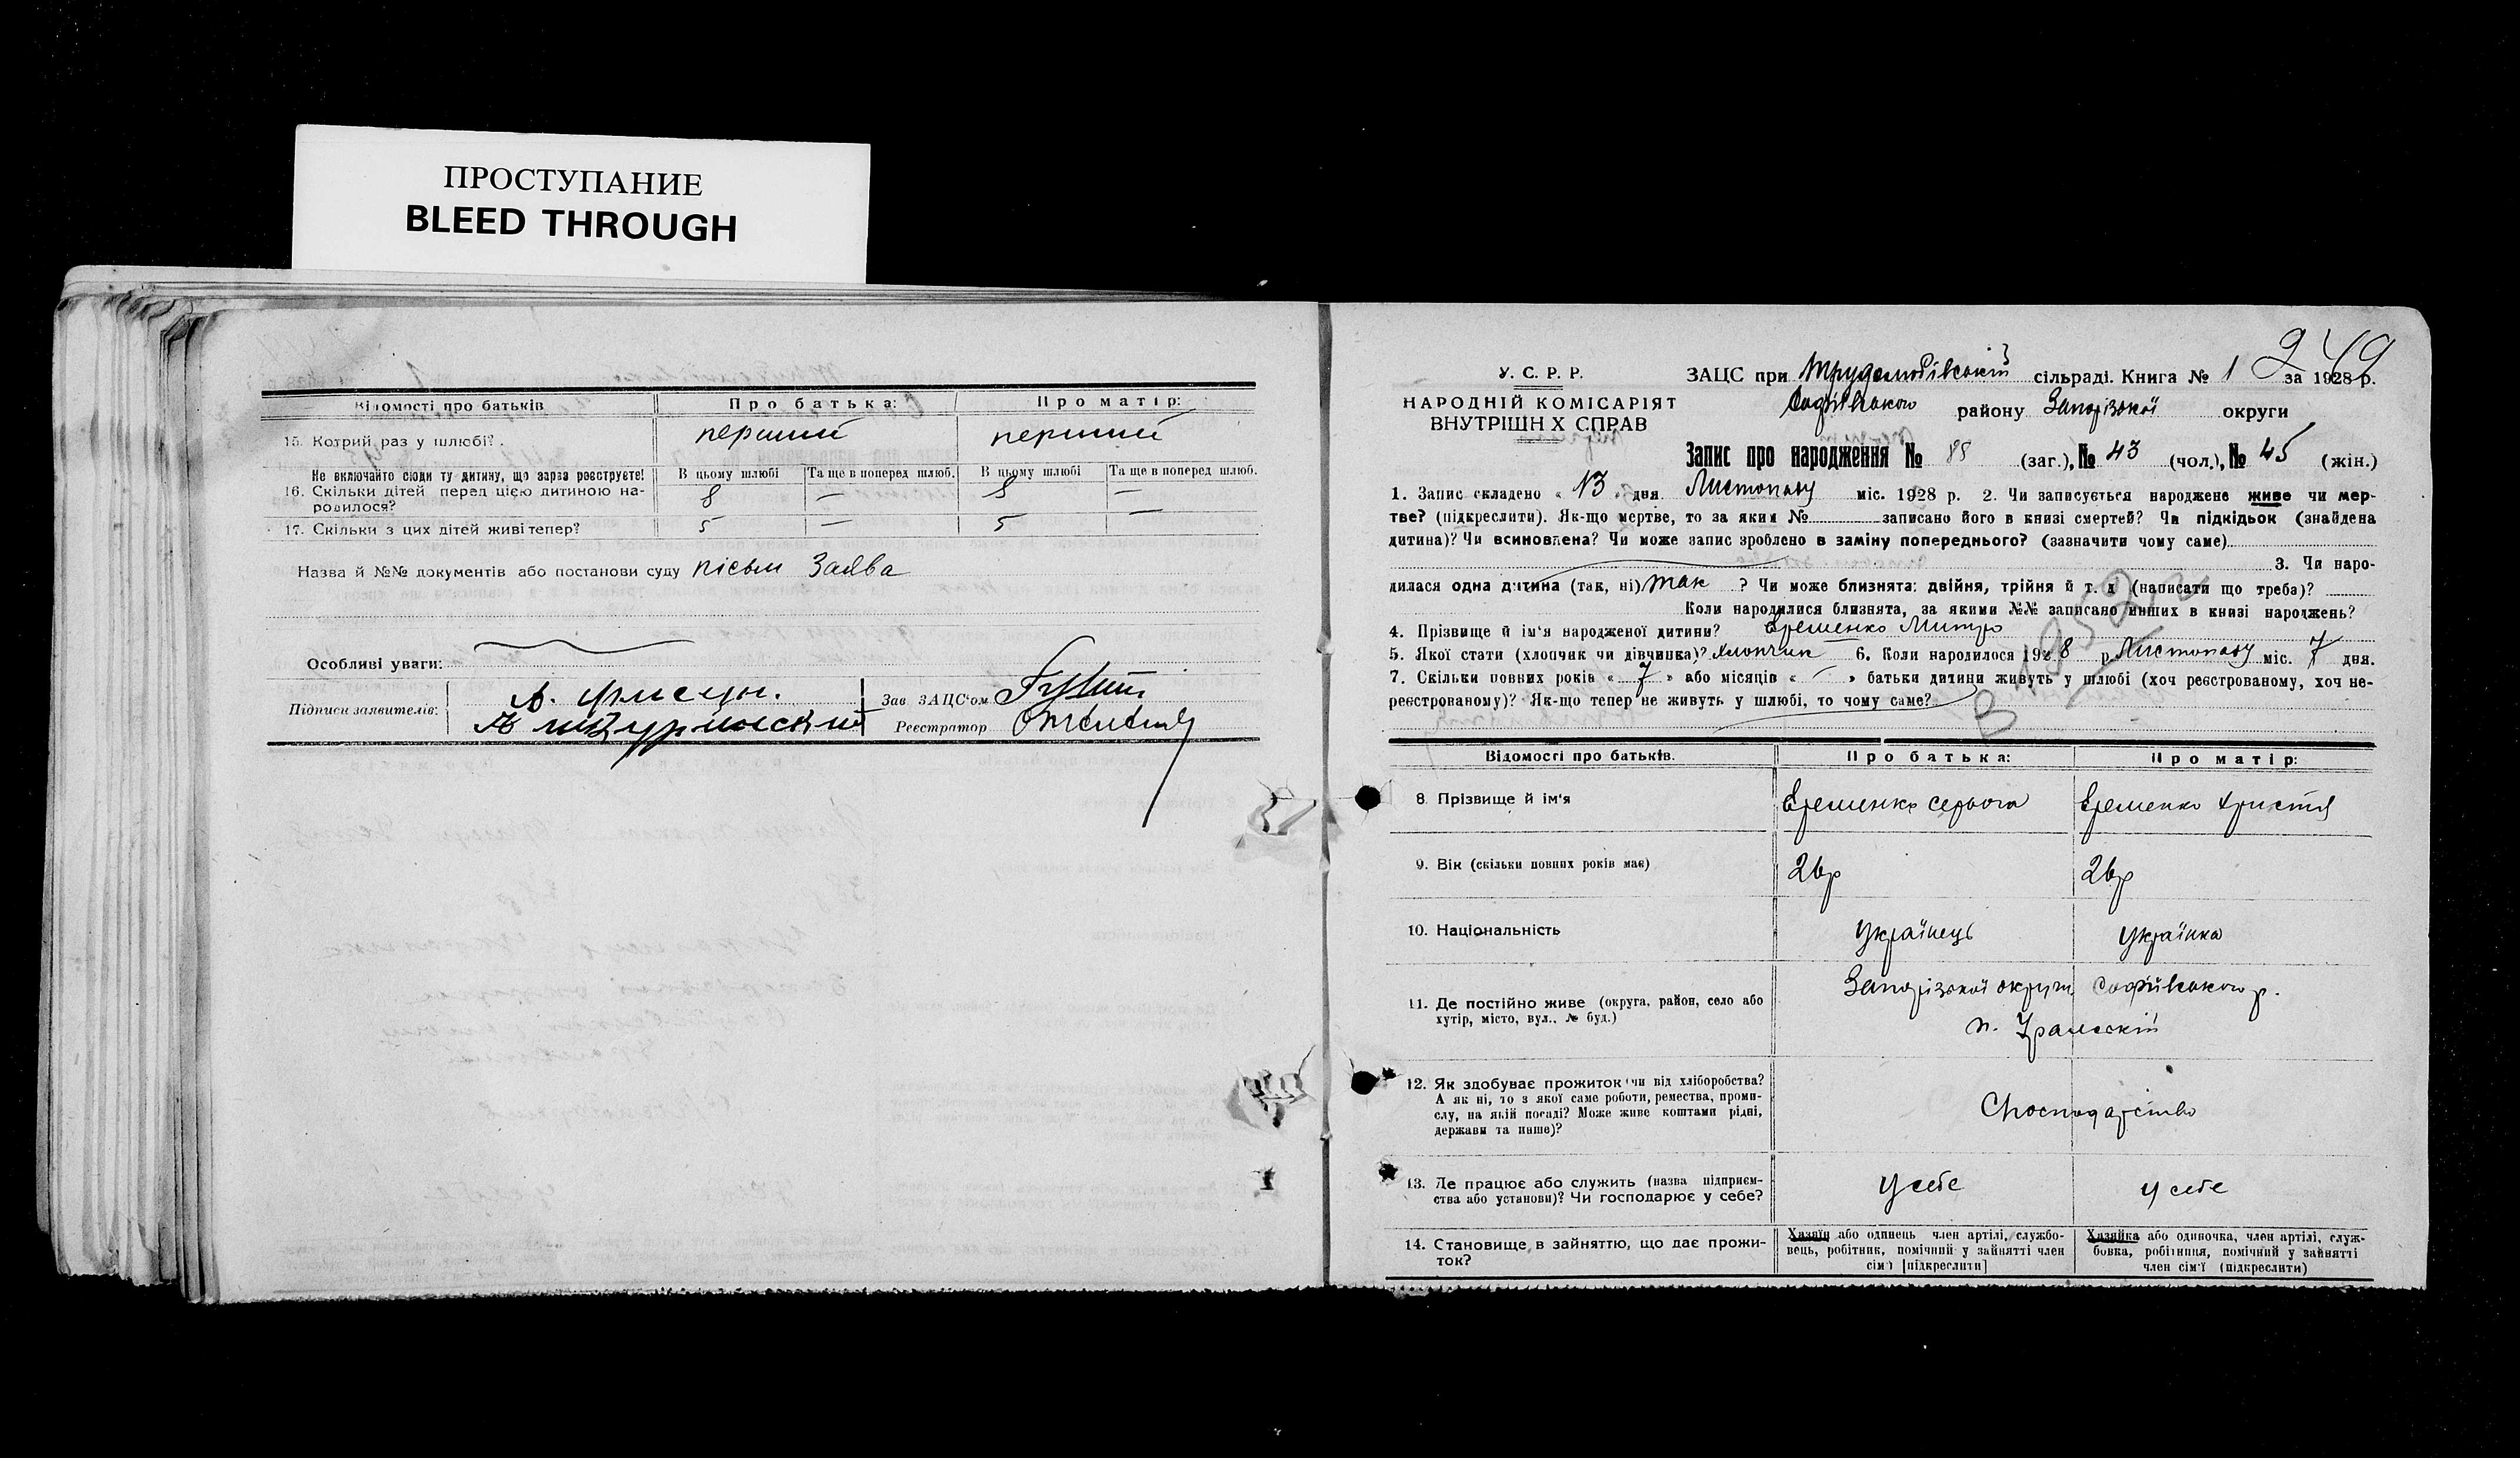 ПРОСТУПАНИЕ
BLEED THROUGH
Відомости про батьків
Про батька:
Про матір:
15. Котрий раз у шлюбі?
перший
перший
Не включайте сюди ту дитину, що зараз реєструєте!
В цьому шлюбі
Та ще в поперед шлюб.
В цьому шлюбі
Та ще в поперед шлюб.
16. Скільки дітей перед цією дитиною на-
родилося?
8 — 8 —
17. Скільки з цих дітей живі тепер?
5 — 5 —
Назва й №№ документів або постанови суду письм Заява
Особливі уваги:
Підписи заявителів:
Зав ЗАЦС'ом
Реєстратор
249
У. С. Р. Р.
НАРОДНІЙ КОМІСАРІЯТ
ВНУТРІШН Х СПРАВ
ЗАЦС при Трудолюбівській сільраді. Книга № 1 за 1928 р.
Софіївського району Запорізької округи
Запис про народження № 88 (заг.), № 43 (чол.), № 45 (жін.)
1. Запис складено « 13 » дня Листопаду міс. 1928 р. 2. Чи записується народжене живе чи мер-
тве? (підкреслити). Як-що мертве, то за яким № записано його в книзі смертей? Чи підкідьок (знайдена
дитина)? Чи всиновлена? Чи може запис зроблено в заміну попереднього? (зазначити чому саме)
3. Чи наро-
дилася одна дитина (так, ні) так ? Чи може близнята: двійня, трійня й т. д (написати що треба)?
Коли народилися близнята, за якими №№ записано инших в книзі народжень?
4. Прізвище й ім'я народженої дитини? Єременко Митро
5. Якої стати (хлопчик чи дівчинка)? хлопчик 6. Коли народилося 1928 р. Листопаду міс. 7 дня.
7. Скільки повних років « 7 » або місяців « — » батьки дитини живуть у шлюбі (хоч реєстрованому, хоч не-
реєстрованому)? Як-що тепер не живуть у шлюбі, то чому саме?
Відомості про батьків.
Про батька:
Про матір:
8. Прізвище й ім'я
Єременко Серьога
Єременко Христя
9. Вік (скільки повних років має)
26р
26р
10. Національність
Українець
Українка
11. Де постійно живе (округа, район, село або
хутір, місто, вул., № буд.)
Запорізької округи Софіївського р.
12. Як здобуває прожиток: чи від хліборобства?
А як ні, то з якої саме роботи, ремества, проми-
слу, на якій посаді? Може живе коштами рідні,
держави та инше)?
Сг̶осподарство
13. Де працює або служить (назва підприєм-
ства або установи)? Чи господарює у себе?
у себе
у себе
14. Становище в зайняттю, що дає прожи-
ток?
Хазяїн або одинець член артілі, службо-
вець, робітник, помічний у зайнятті член
сім'ї [підкреслити]
Хазяйка або одиночка, член артілі, служ-
бовка, робітниця, помічний у зайнятті
член сім'ї (підкреслити)